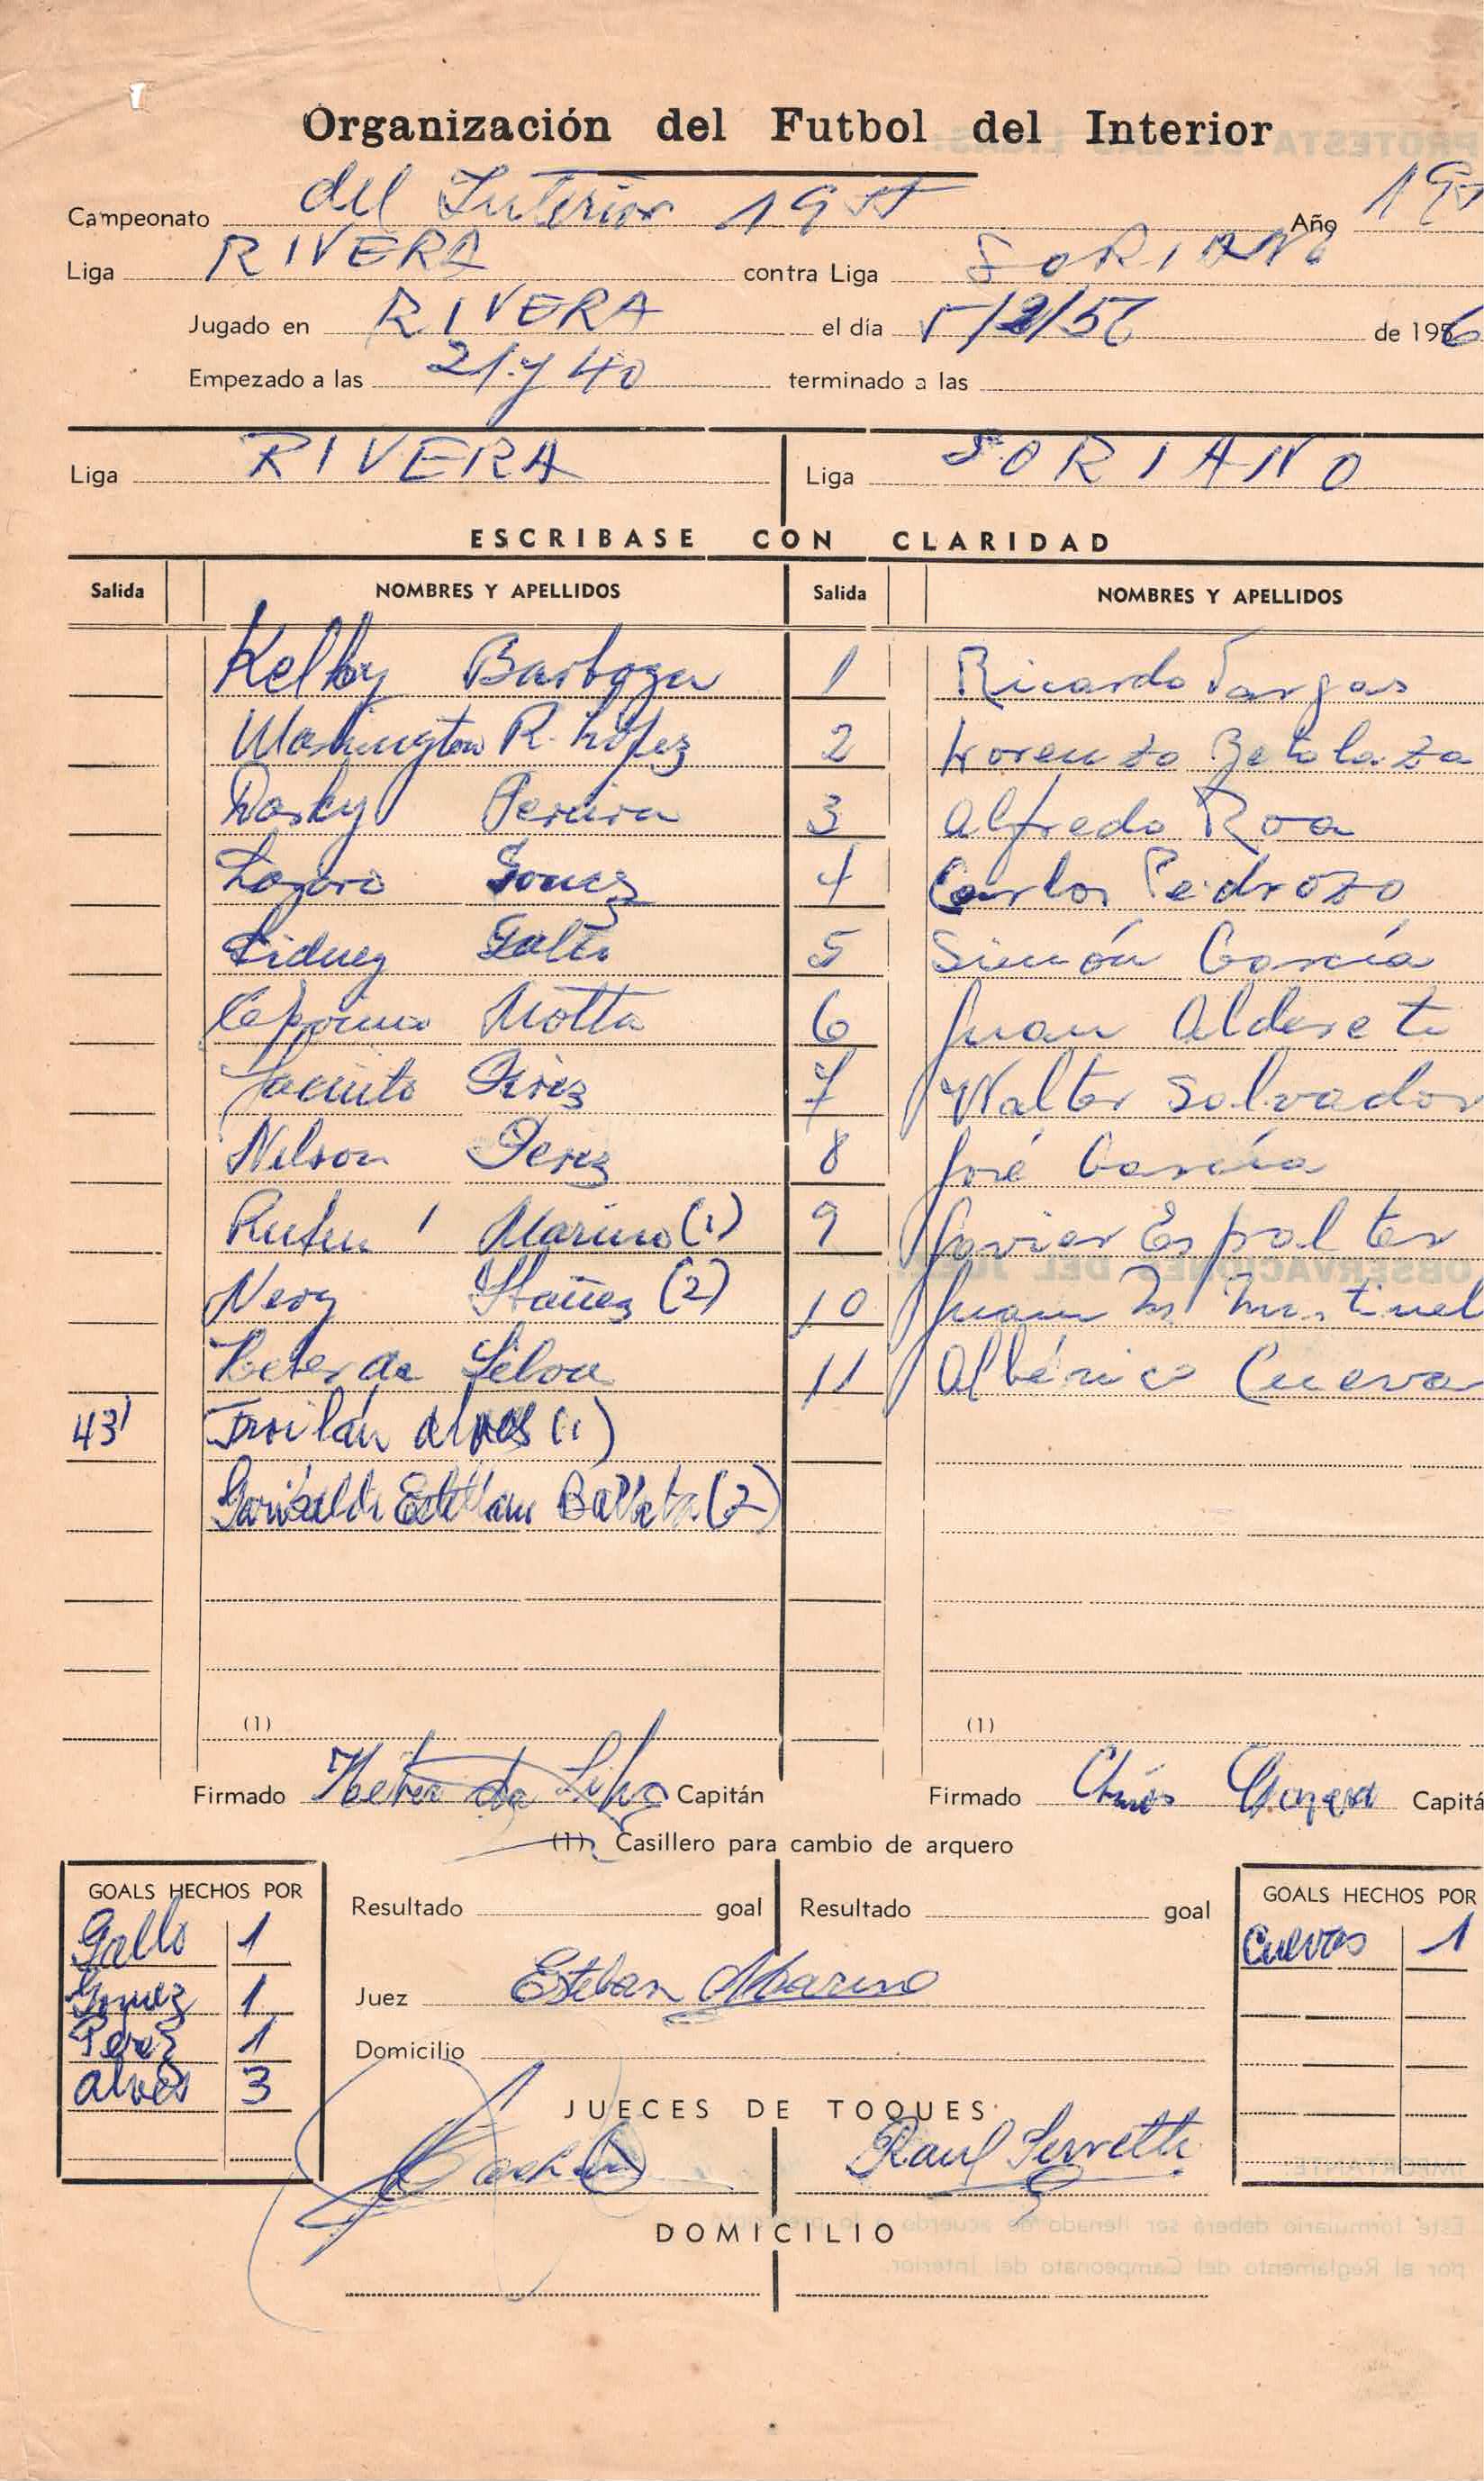 Organización del Futbol del Interior
Campeonato del Interior 1955 Año 19
Liga RIVERA contra Liga SORIANO
Jugado en RIVERA el día 5/2/56 de 1956
Empezado a las 21 y 40 terminado a las
Liga RIVERA Liga SORIANO
ESCRIBASE CON CLARIDAD
Salida NOMBRES Y APELLIDOS Salida NOMBRES Y APELLIDOS
Kelby Barboza 1 Ricardo Vargas
Washington R. López 2 Lorenzo Betolaza
Pereira 3 Alfredo Roa
Lazaro Gomez 4 Carlos Pedrozo
Sidney Gallo 5 Simón García
Motta 6 Juan Alderete
Jacinto Pérez 7 Walter Salvador
Nelson Perez 8 José García
Ruben Marino (1) 9 Javier Espalter
Nery (2) 10 Juan M.
Heber da Silva 11 Albérico Cueva
43' Froilán Alves (1)
Garibaldi (2)
(1) (1)
Firmado Heber da Silva Capitán Firmado Capitá
(1) Casillero para cambio de arquero
GOALS HECHOS POR
Gallo 1
Gomez 1
Perez 1
Alves 3
Resultado goal Resultado goal
GOALS HECHOS POR
Cuevas 1
Juez Esteban Marino
Domicilio
JUECES DE TOQUES
Raul
DOMICILIO